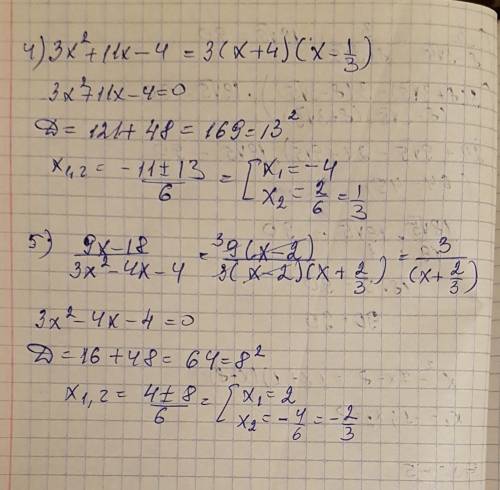 4) 3x²+11x-4 = 3(x+4)(x-1/3)
3x²+11x-4=0
D = 121+48 = 169 = 13²
x₁,₂ = -11±13/6 = [x₁=-4
x₂=2/6=1/3
5) 9x-18/3x²-4x-4 = ³9(x-2)/3(x-2)(x+2/3) = 3/(x+2/3)
3x²-4x-4=0
D=16+48=64=8²
x₁,₂ = 4±8/6 = [x₁=2
x₂=-4/6=-2/3